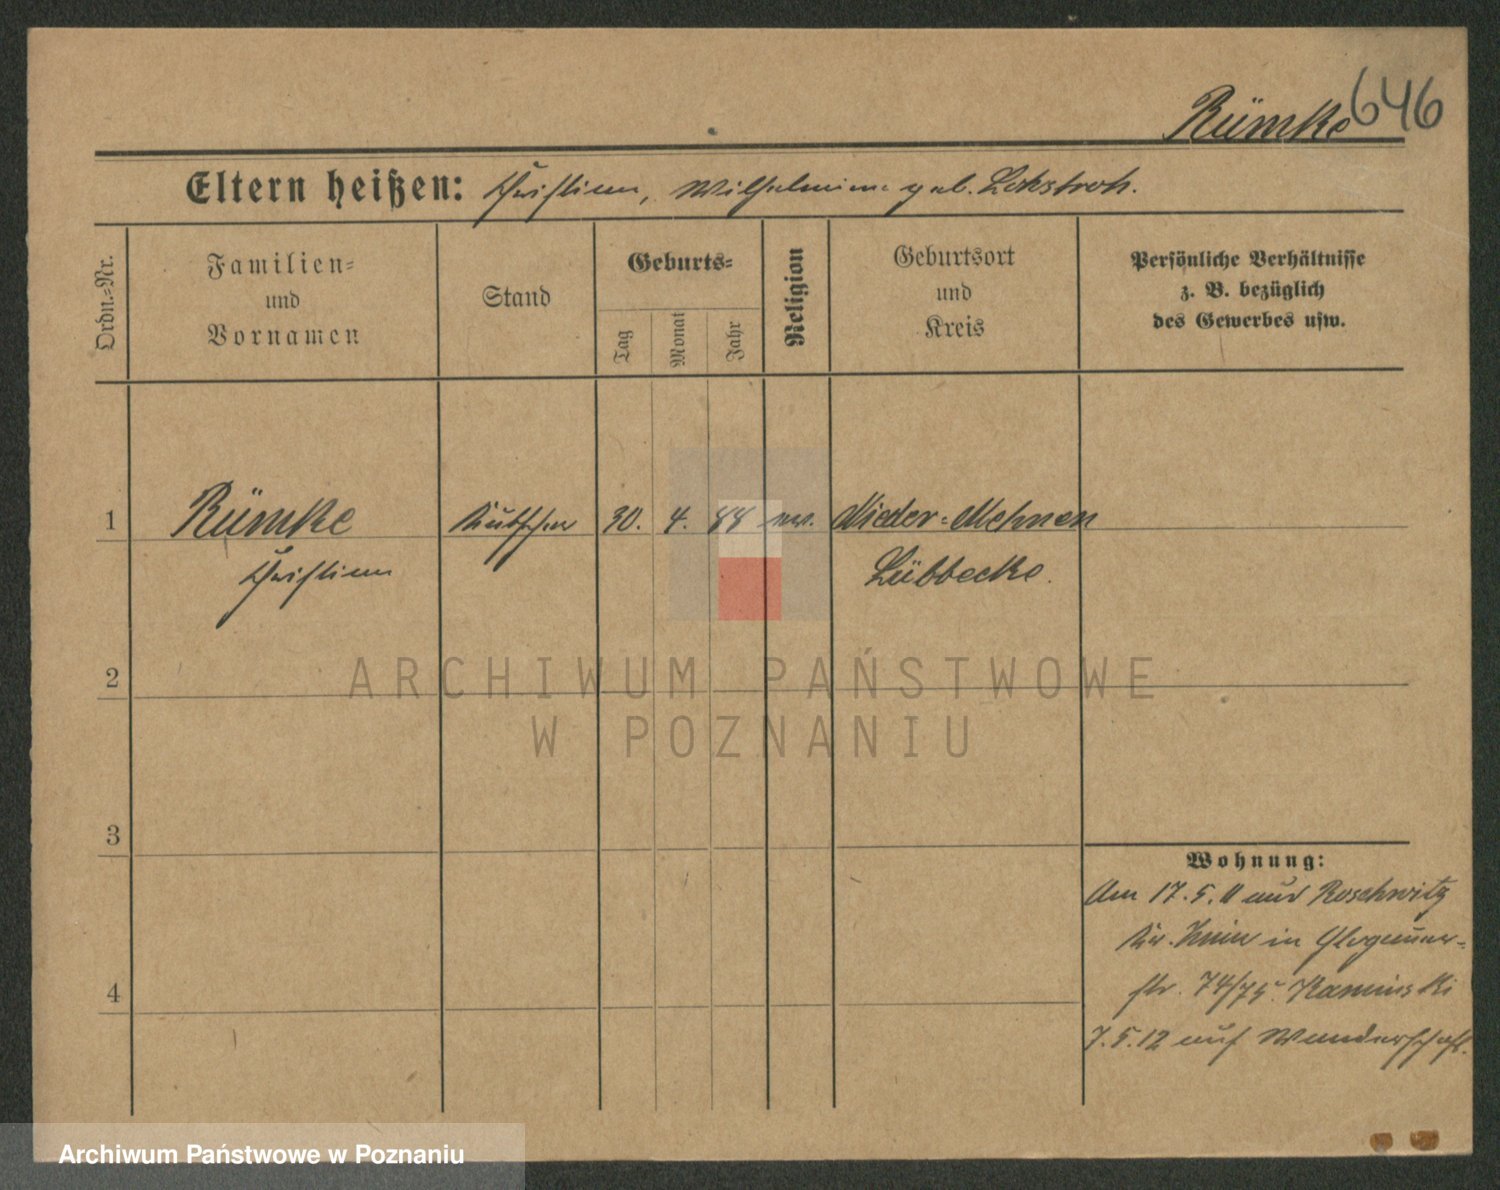 Rümke 646
Eltern heißen: Christian, Wilhelmine geb. Lohstroh.
Ordn.=Nr.
Familien=
und
Vornamen
Stand
Geburts=
Tag
Monat
Jahr
Religion
Geburtsort
und
Kreis
Persönliche Verhältnisse
z. B. bezüglich
des Gewerbes usw.
1 Rümke Kutscher 30. 4. 88 ev. Nieder=Mehnen
Christian Lübbecke.
2
ARCHIWUM PAŃSTWOWE
W POZNANIU
3
Wohnung:
Am 17.5.11 aus Roschwitz
Kr. Znin in Glogauer=
str. 74/75. Kaminski
7.5.12 auf Wanderschaft.
4
Archiwum Państwowe w Poznaniu